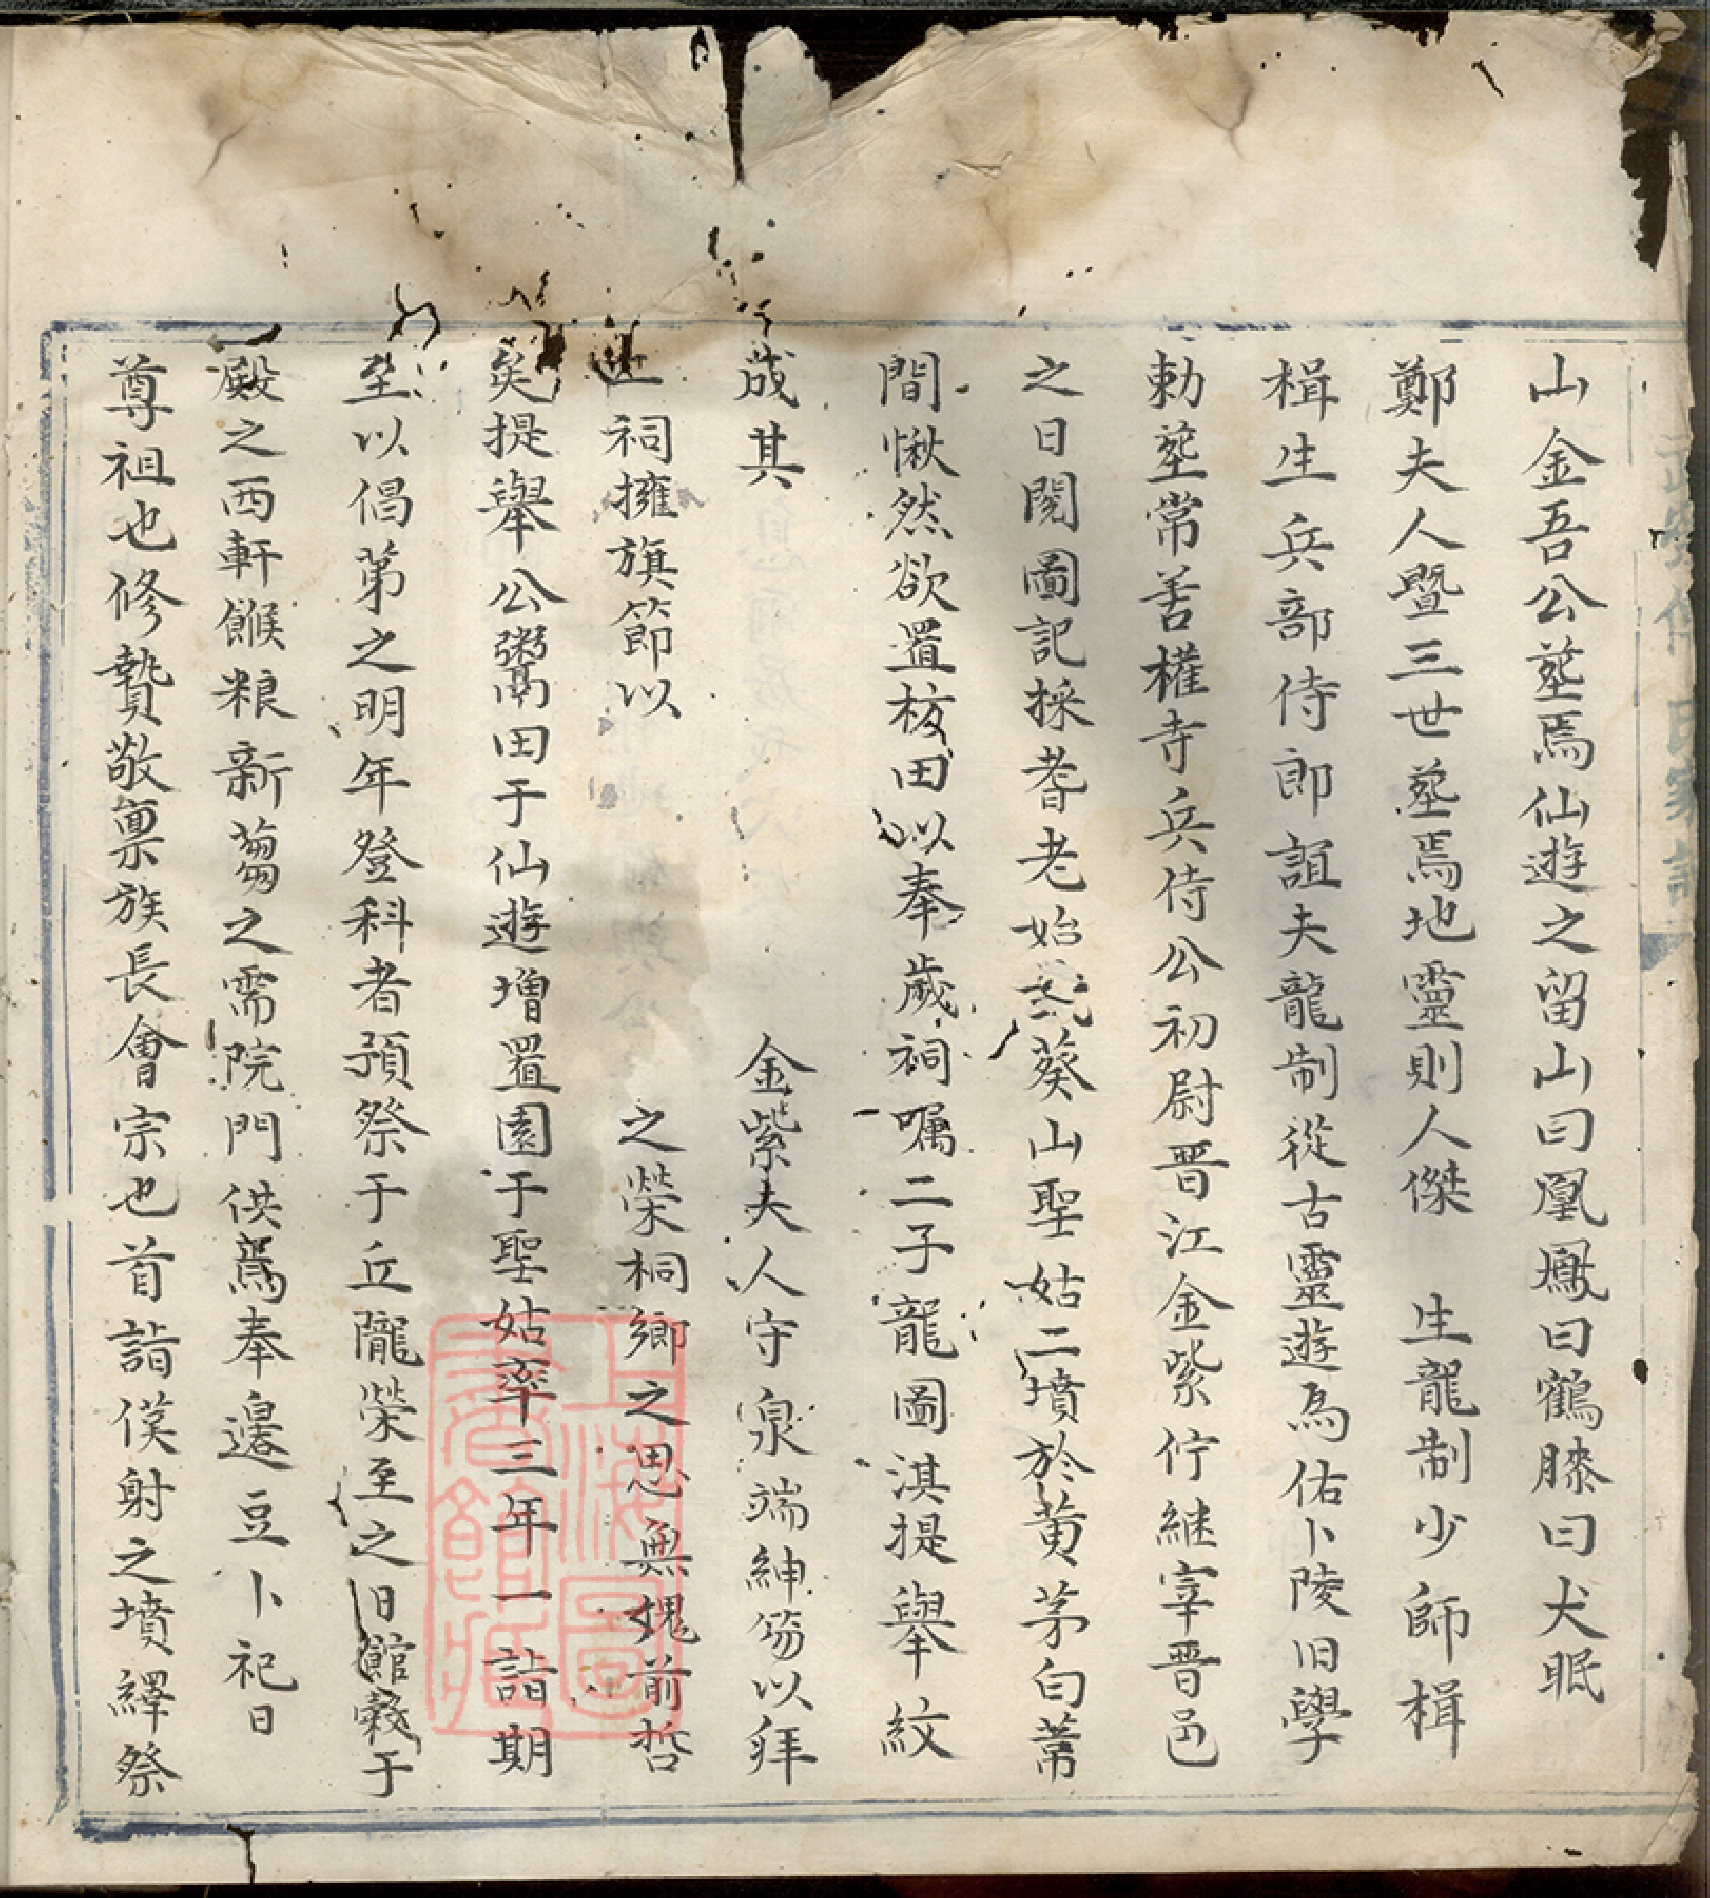 山金吾公塟焉仙遊之留山曰凰鳳曰鶴膝曰犬眠
鄭夫人暨三世塟焉地靈則人傑 生龍制少師楫
楫生兵部侍郎誼夫龍制從古靈遊為佑卜陵旧學
勅塟常善權寺兵侍公初尉晋江金紫佇継宰晋邑
之日閱圖記採耆老始葵山聖姑二墳於黄茅白葦
間愀然欲置核田以奉歲祠嘱二子龍圖淇提舉紋
成其 金紫夫人守泉端紳笏以拜
祠擁旗節以 之榮桐鄉之思無媿前哲
矣提舉公鬻田于仙遊增置園于聖姑率三年一詣期
塋以倡第之明年登科者預祭于丘隴榮至之日館穀于
殿之西軒餱粮新蒭之需院門供焉奉邉豆卜祀日
尊祖也修贄敬稟族長會宗也首詣僕射之墳繹祭
上海圖書館藏